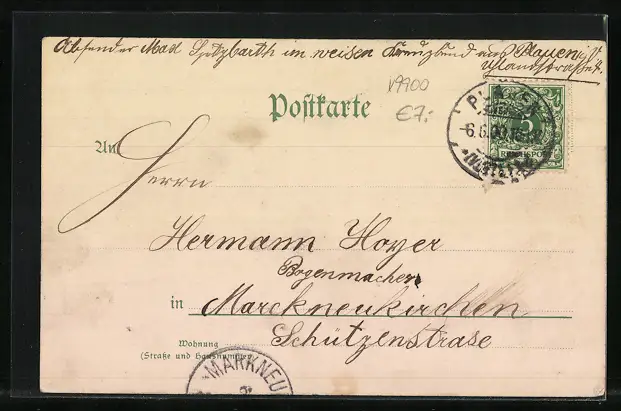 Absender Max Spitzbarth im weisen Kreuzbund aus Plauen i/V
Ulandstrasse
V1900
€7,-
Postkarte
PLAUEN
-6.6.00.
REICHSPOST
An
Herrn
Hermann Hoyer
Bogenmacher
in Marckneukirchen
Wohnung
(Straße und Hausnummer)
Schützenstrase
MARKNEU